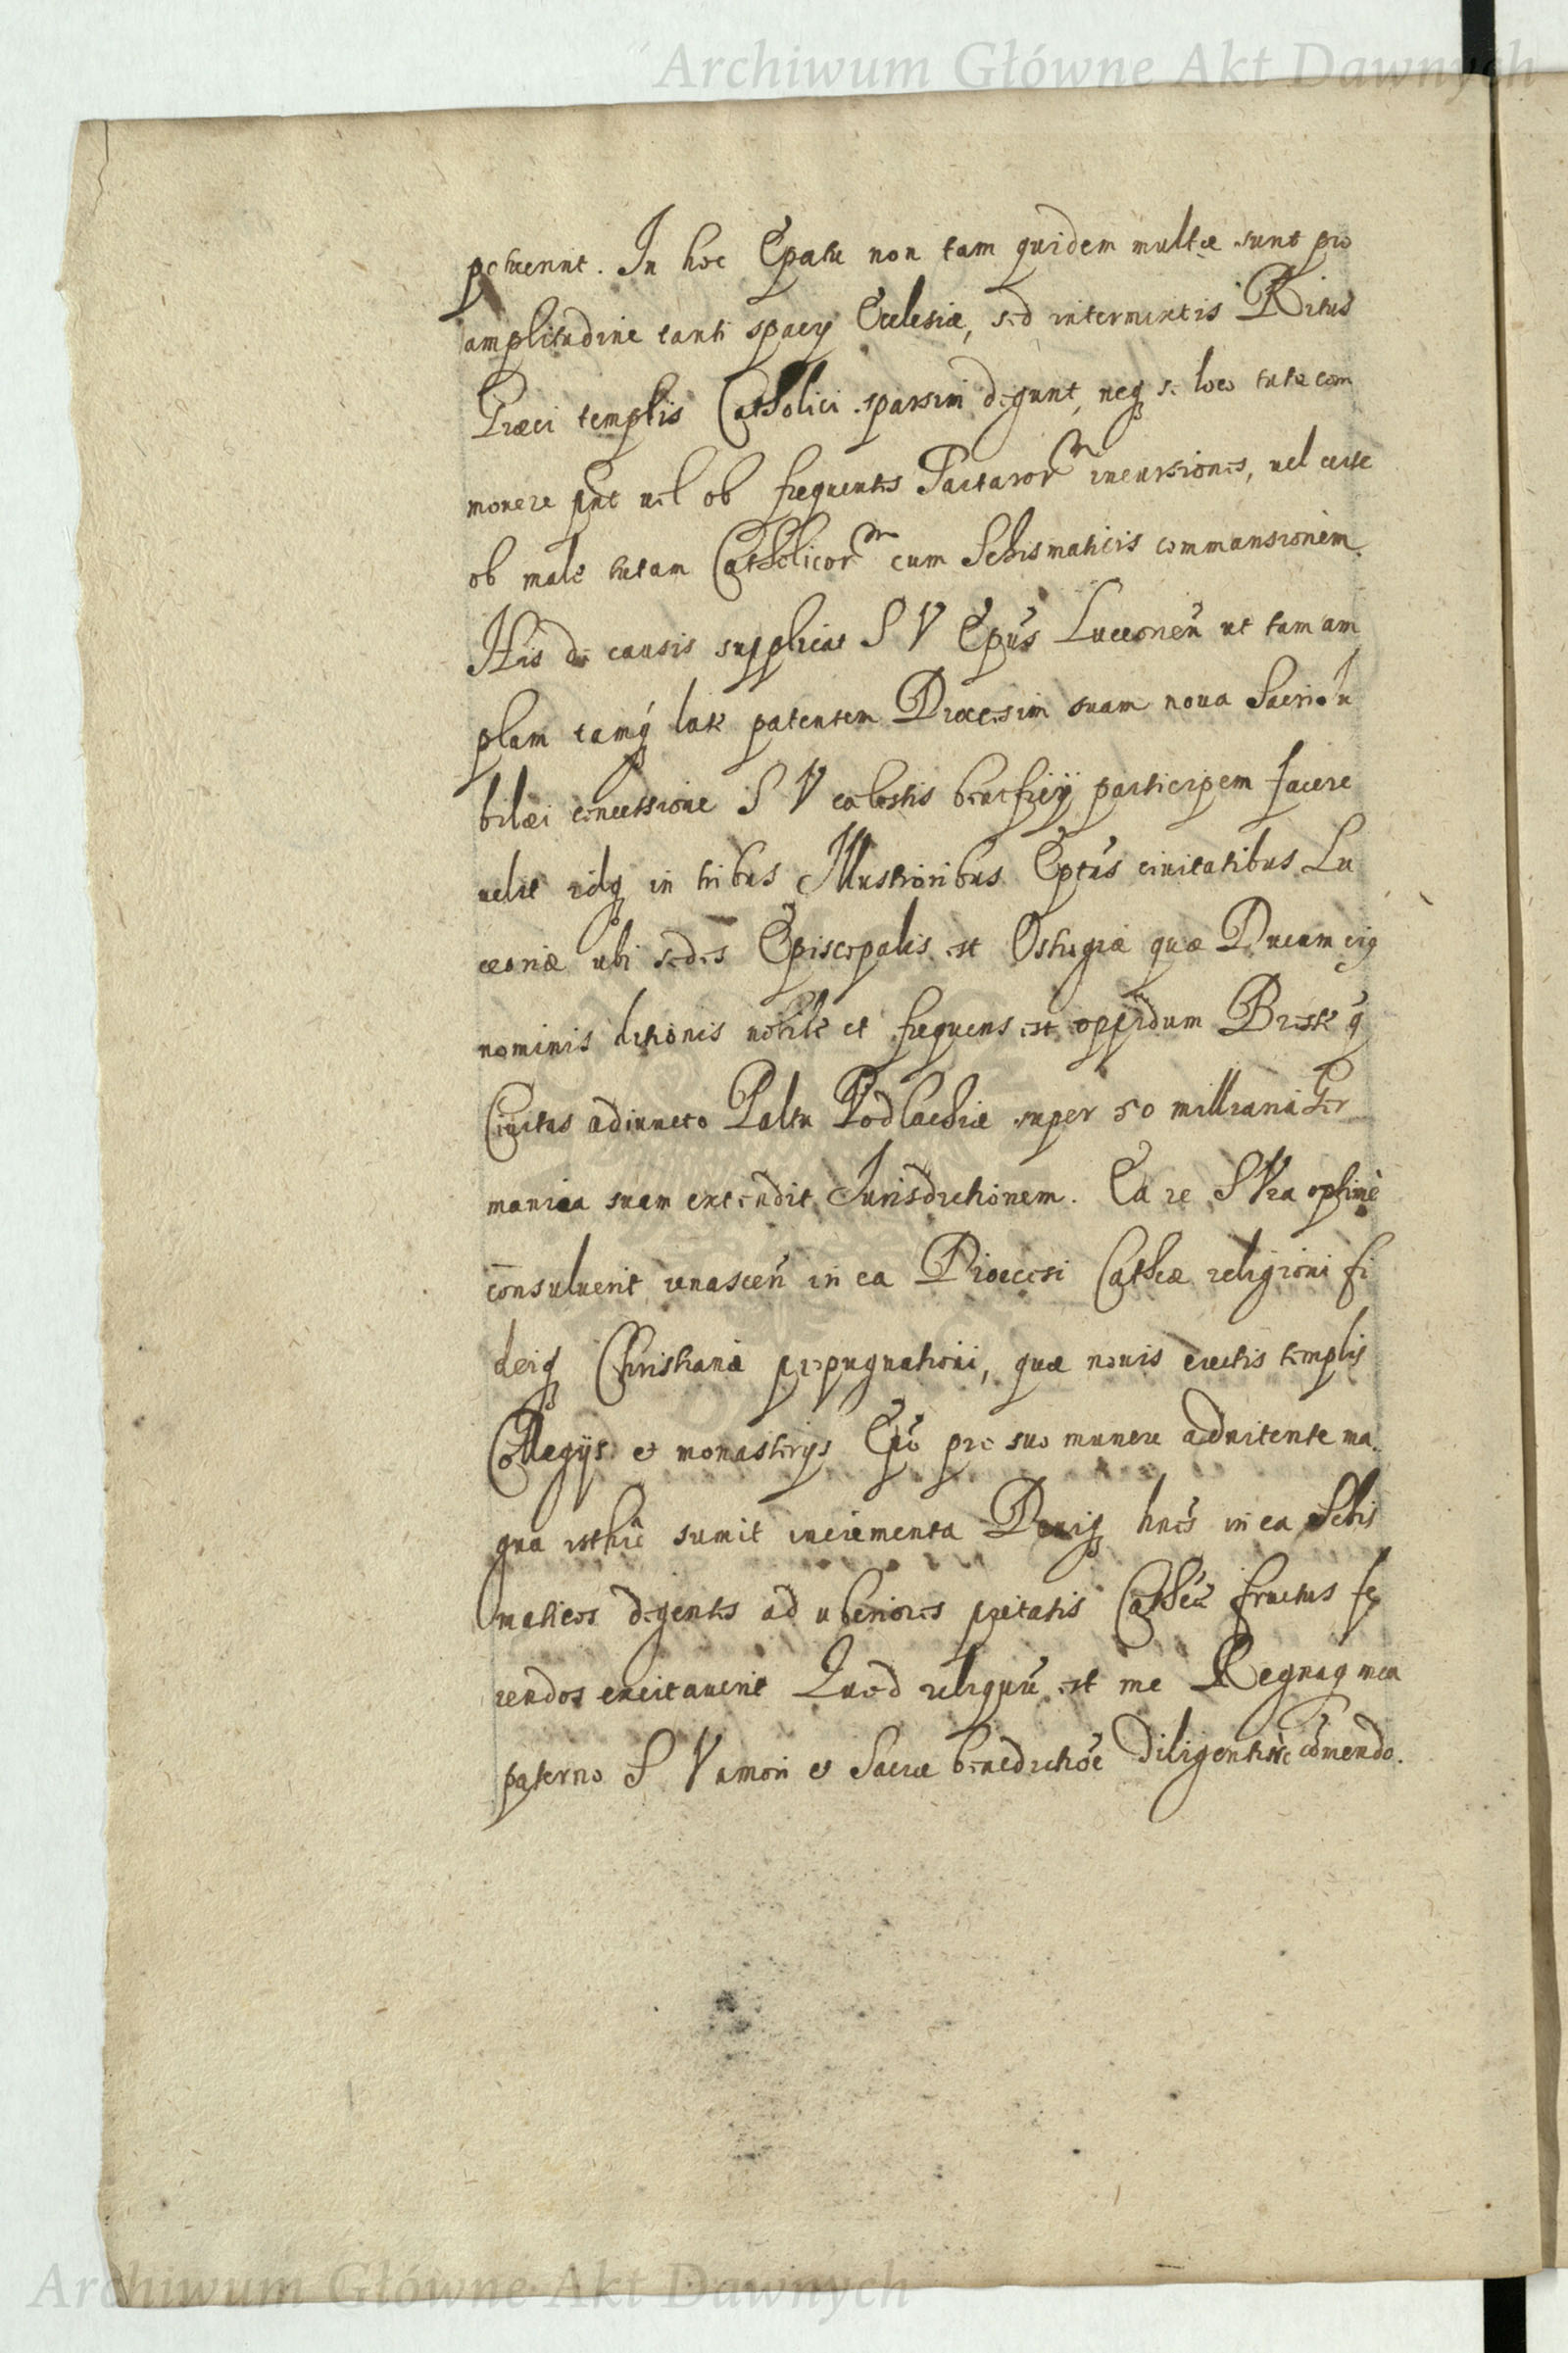 Archiwum Główne Akt Dawnych
potuerint. In hoc Ep̃atu non tam quidem multæ sunt pro
amplitudine tanti spacy Ecclesiæ, sed intermixtis Ritus
Græci templis Catholici sparsim degunt, neq se loco tuto com
mouere pñt uel ob frequentes Tartaror͂ incursiones, uel certe
ob male tutam Catholicor͂ cum Schismaticis commansionem.
His de causis supplicat S V Ep̃us Luceoreñ ut tam am
plam tamq̃ late patentem Diocesim suam noua Sacri Iu
bilæi concessione S V cœlestis beneficij participem facere
uelit idq in tribus Illustrioribus Ep̃tus ciuitatibus Lu
ceoriæ ubi sedes Episcopalis est Ostrogiæ quæ Ducum eiq
nominis ditionis nobile et frequens est oppidum Breste q̃
Ciuitas adiuncto Paltu Podlachiæ super 50 milliaria Ger
manica suam extendit Iurisdictionem. Ea re S Vra optime
consuluerit renasceñ in ea Diœcesi Cathcæ religioni fi
deiq Christianæ propugnationi, quæ nouis erectis templis
Collegijs et monasterijs Ep̃o pro suo munere adnitente ma
gna isthic sumit incrementa Deniq hnẽs in ea Schis
maticos degentes ad uberiores pietatis Cathcæ fructus fe
rendos excitauerit Quod reliquũ est me Regnaq mea
paterno S V amori et Sacræ benedictiõe diligentiss͂e cõmendo.
Archiwum Główne Akt Dawnych